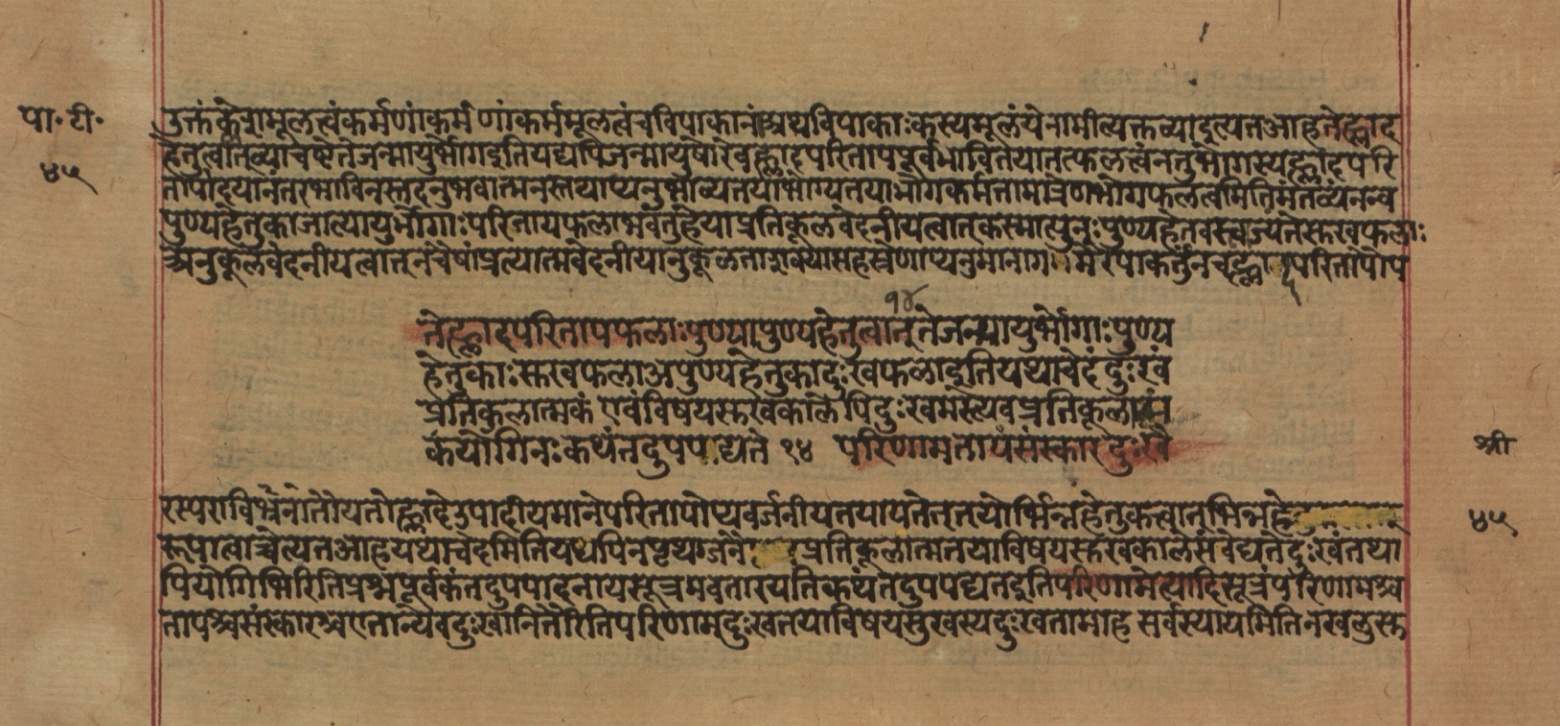 पा॰ टी॰
४५
उक्तंक्लेशमूलत्वंकर्मणांकर्मणांकर्ममूलत्वंचविपाकानांअथविपाकाःकस्यमूलंयेनामीत्यक्तव्याइत्यतआहतेह्लाद
हेतुत्वात्व्याचष्टेतेजन्मायुर्भोगाइतियद्यपिजन्मायुषोरेवह्लादपरितापपूर्वभावितयातत्फलत्वंनतुभोगस्यह्लादपरि
तापोदयानंतरभाविनस्तदनुभवात्मनस्तथाप्यनुभाव्यतयाभोग्यतयाभोगकर्मतामात्रेणभोगफलत्वमितिमंतव्यंनन्व
पुण्यहेतुकाजात्यायुर्भोगाःपरितापफलाभवंतुहेयाप्रतिकूलवेदनीयत्वात्कस्मात्पुनःपुण्यहेतवस्त्यज्यंतेसुखफलाः
अनुकूलवेदनीयत्वात्नचैषांप्रत्यात्मवेदनीयानुकूलताशक्यासहस्रेणाप्यनुमानागमैरपाकर्तुंनचह्लादपरितापौप
१४
तेह्लादपरितापफलाःपुण्यापुण्यहेतुत्वात् तेजन्मायुर्भोगाःपुण्य
हेतुकाःसुखफलाअपुण्यहेतुकादुःखफलाइतियथाचेदंदुःखं
प्रतिकुलात्मकं एवंविषयसुखकालेपिदुःखमस्त्येवप्रतिकूलात्म
कंयोगिनःकथंतदुपपद्यते १४ परिणामतापसंस्कारदुःखै
श्री
४५
रस्पराविभूनांतौयतोह्लादेउपादीयमानेपरितापोप्यवर्जनीयतयापतेत्तयोर्भिन्नहेतुकत्वात्भिन्नहे
रूपत्वाच्चेत्यतआहयथाचेदमितियद्यपिनपृथग्जनैः प्रतिकूलात्मतयाविषयसुखकालेसंवेद्यतेदुःखंतथा
पियोगिभिरितिप्रश्नपूर्वकंतदुपपादनायसूत्रमवतारयतिकथंतदुपपद्यतइतिपरिणामेत्यादिसूत्रंपरिणामश्च
तापश्चसंस्कारश्चएतान्येवदुःखानितैरितिपरिणामदुःखतयाविषयसुखस्यदुःखतामाह सर्वस्यायमितिनखलुसु